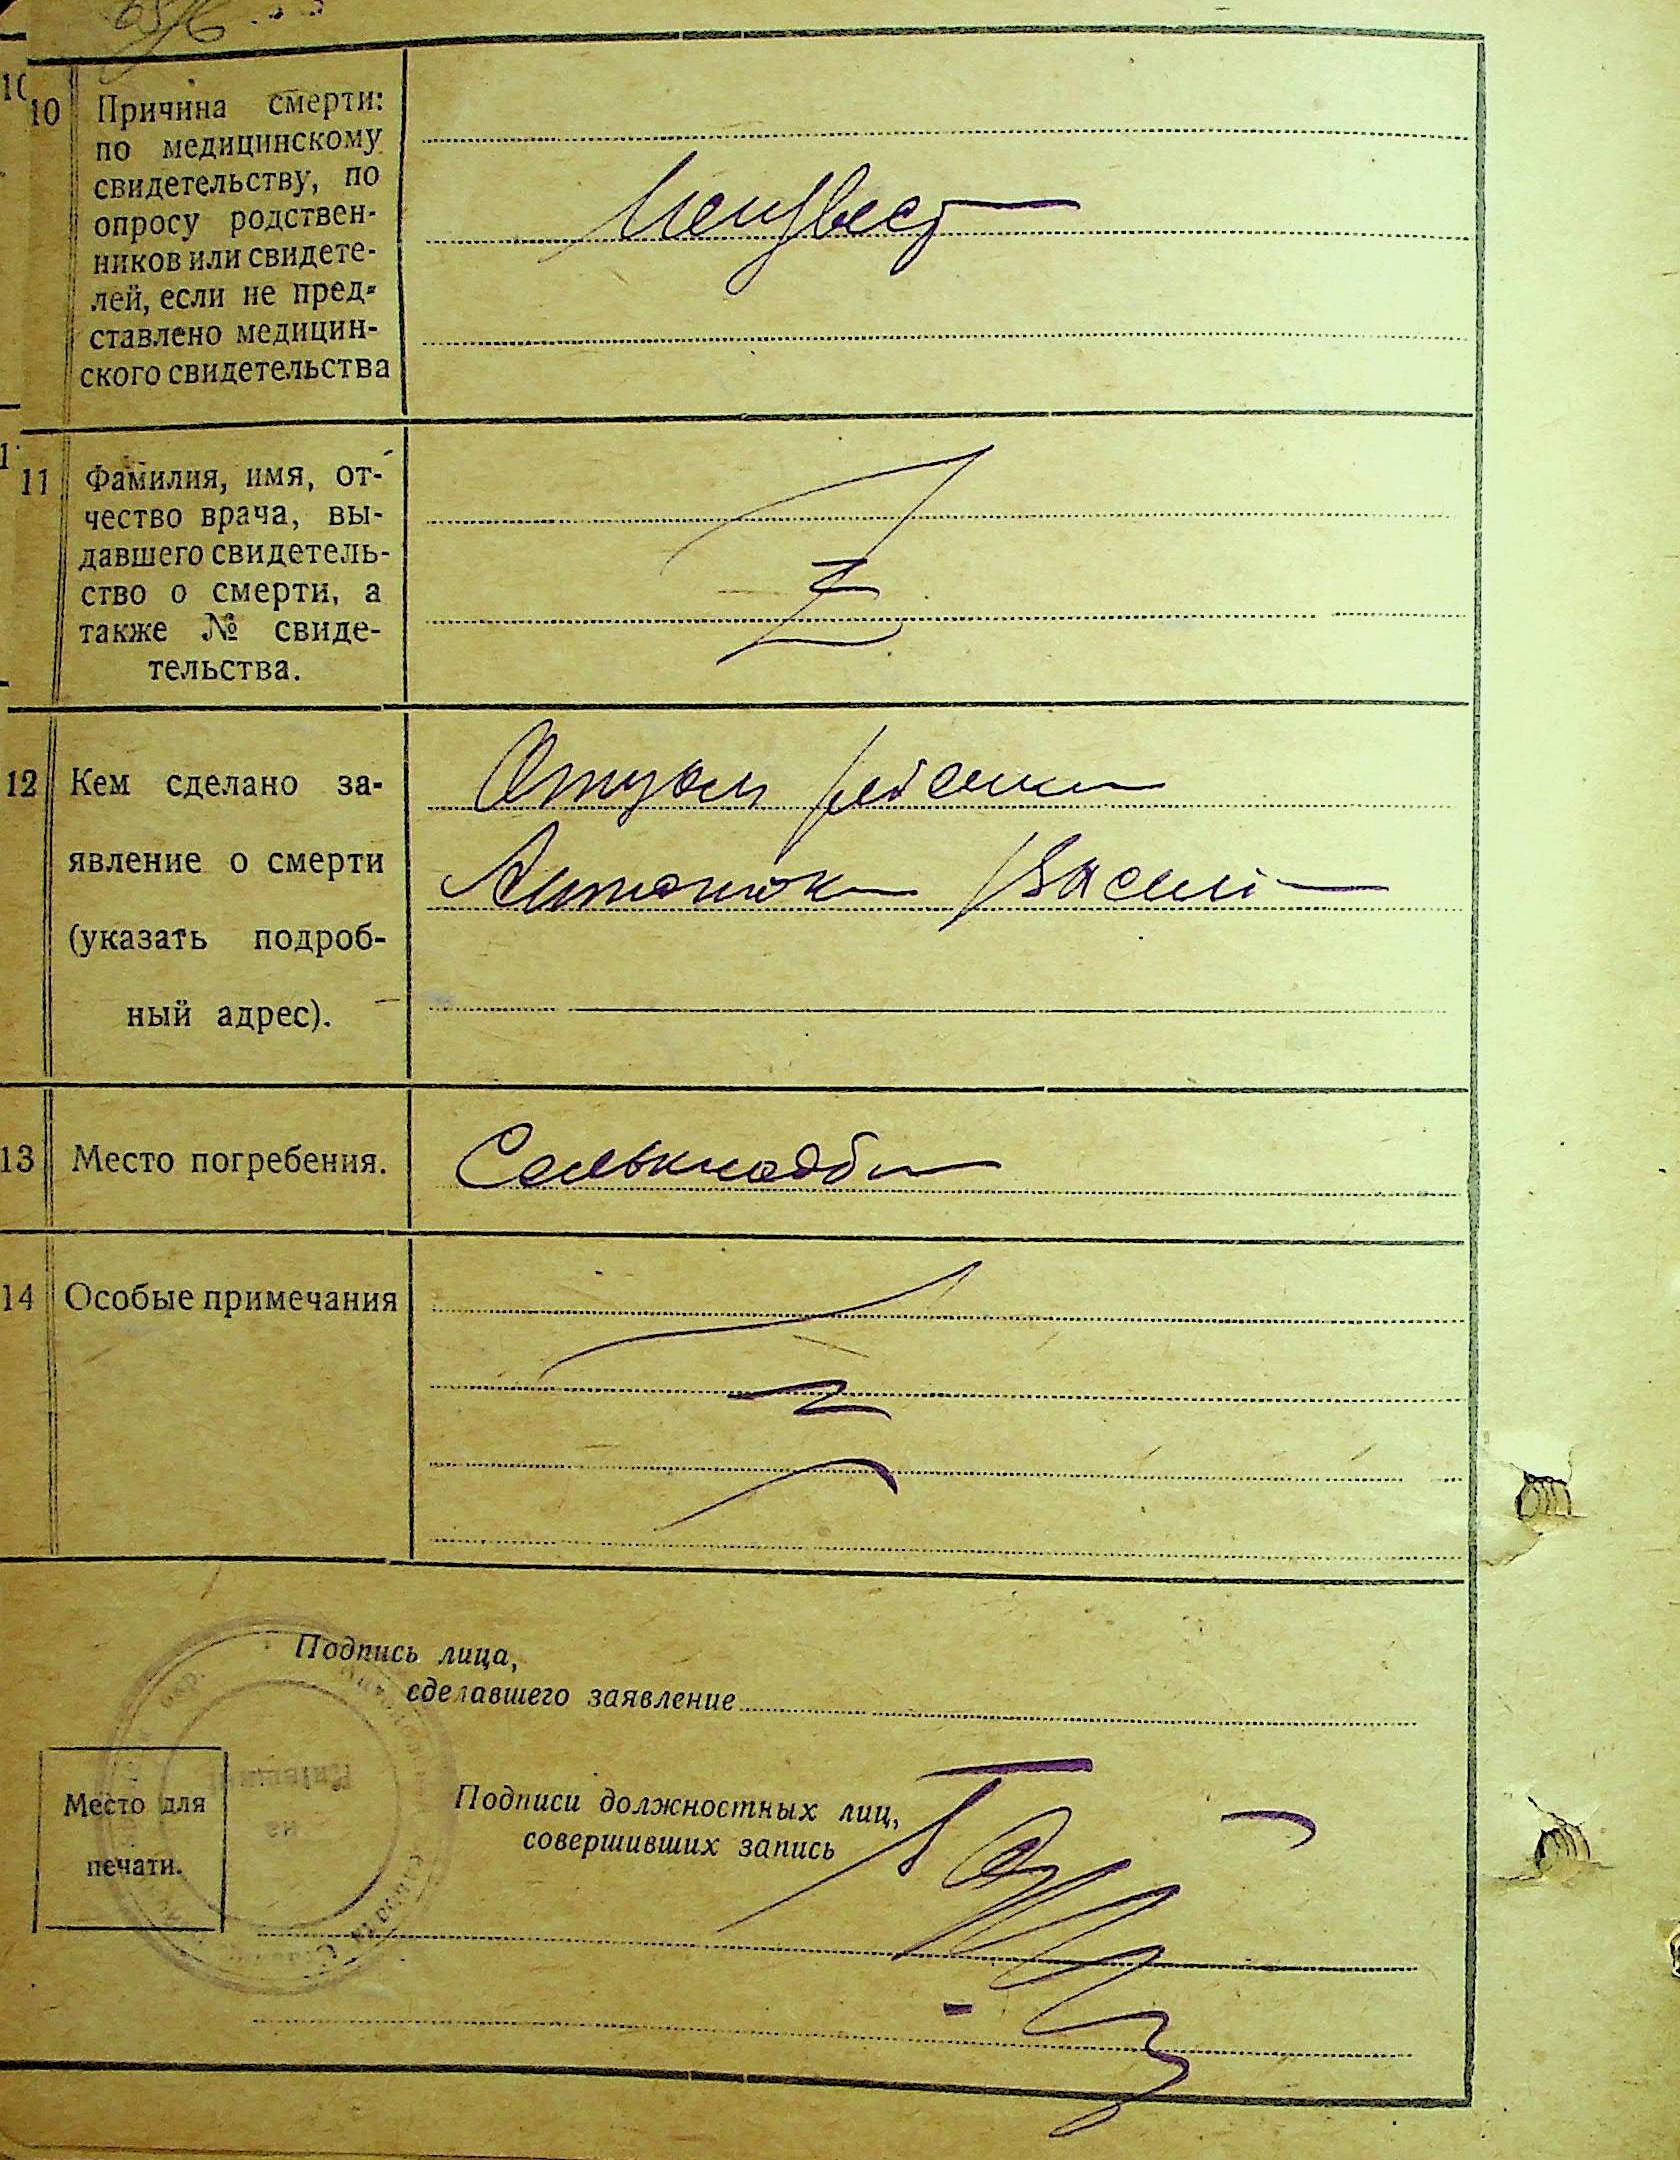 10 Причина смерти:
по медицинскому
свидетельству, по
опросу родствен-
ников или свидете-
лей, если не пред-
ставлено медицин-
ского свидетельства
Неизвест
11 Фамилия, имя, от-
чество врача, вы-
давшего свидетель-
ство о смерти, а
также № свиде-
тельства.
12 Кем сделано за-
явление о смерти
(указать подроб-
ный адрес).
Отцом
Антонюк Васил
13 Место погребения.
14 Особые примечания
Подпись лица,
сделавшего заявление
Место для
печати.
Подписи должностных лиц,
совершивших запись